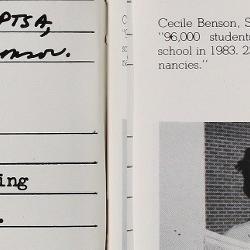 PTSA,
ing
Cecile Benson, S
"96,000 students
school in 1983. 2
nancies."